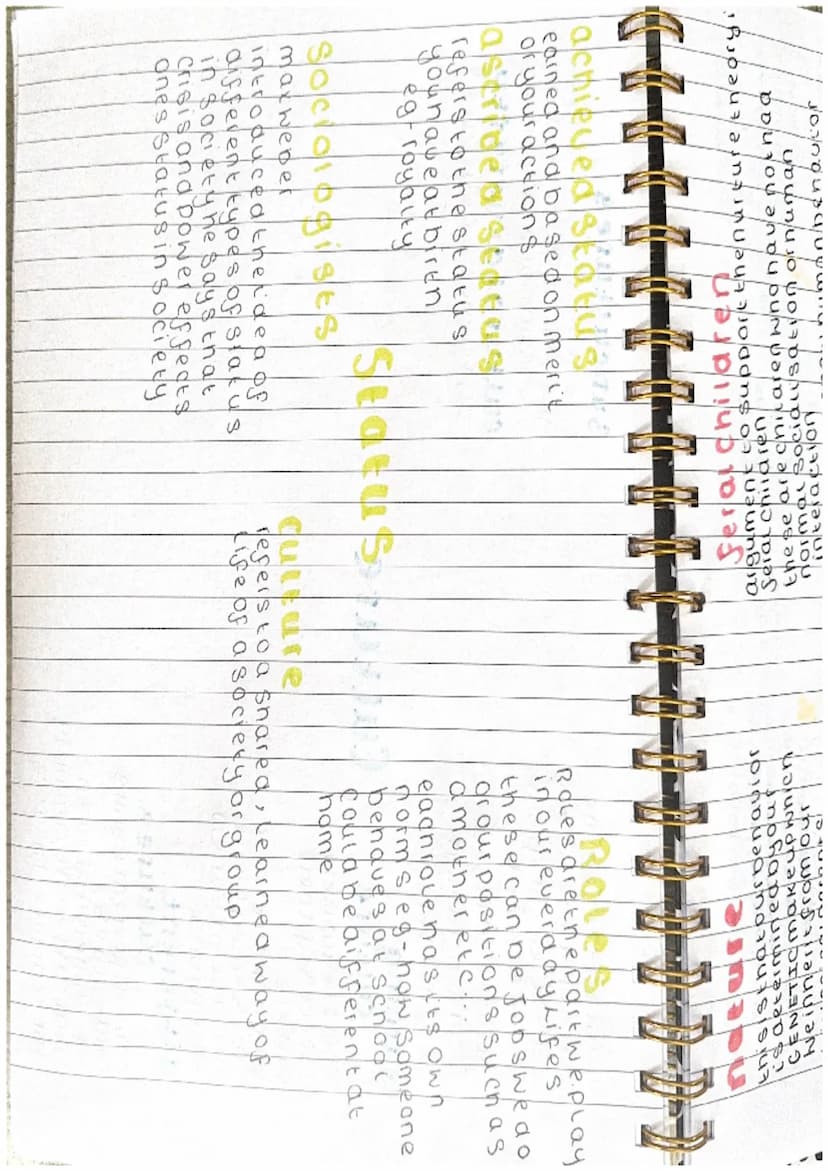 achieved status
earned and based on merit
or your actions
ascribed status
refers to the status
you have at birth
eg-royalty
Sociologists
max weber
introduced the idea of
different types of status
in society he says that
crisis and power effects
ones status in society
Status
culture
refers to a shared, learned way of
life of a society or group
Roles
Roles are the part we play
in our everday lifes
these can be jobs we do
or our positions such as
a mother etc...
each role has its own
norms eg-how someone
behaves at school
could be different at
home
feral children
argument to support the nurture theory:
feral children
these are children who have not had
normal socialisation or human
interaction
human behavior
nature
this is that our behavior
is determined by our
GENETIC makeup which
we inherit from our
parents